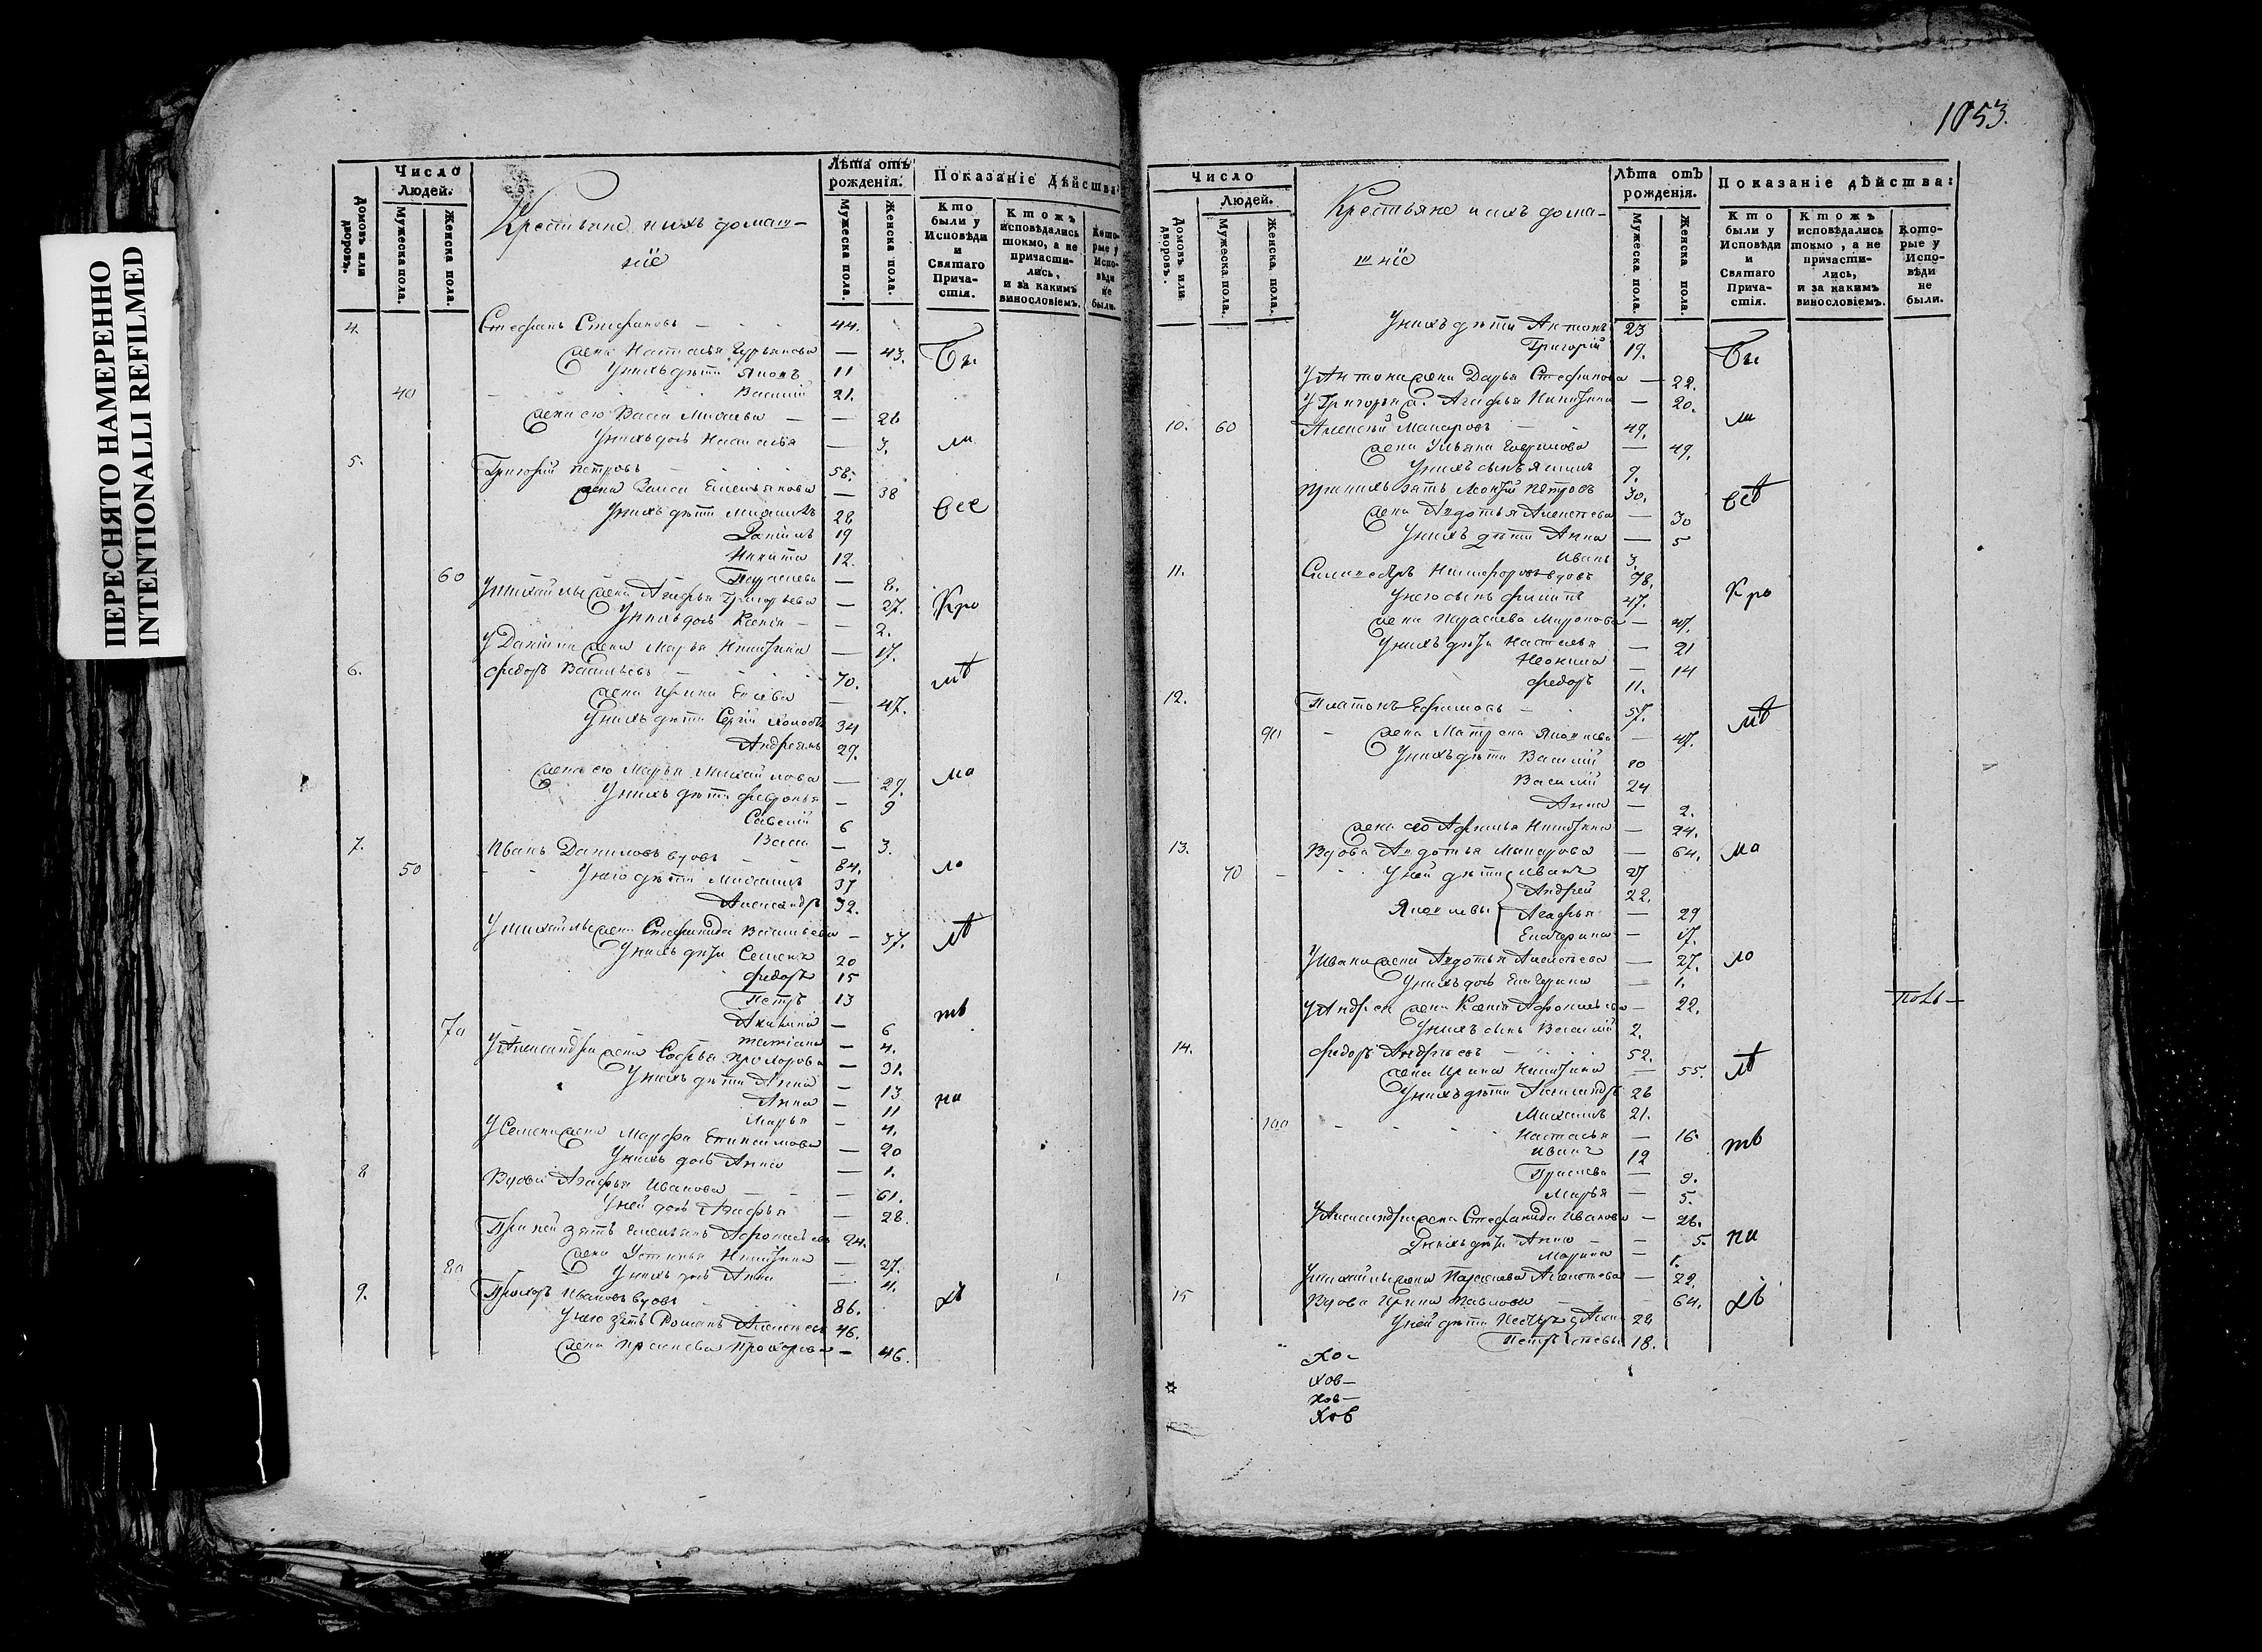 ПЕРЕСНЯТО НАМЕРЕННО
INTENTIONALLI REFILMED
Домовъ или дворовъ.
Число Людей.
Мужеска пола.
Женска пола.
Крестьяне и ихъ домаш-
ніе
Лѣта отъ рожденія.
Мужеска пола.
Женска пола.
Показаніе дѣйства:
Кто были у Исповѣди и Святаго Причастія.
Ктожъ исповѣдались токмо, а не причастились, и за какимъ винословіемъ.
Которые у Исповѣди не были.
4. Стефанъ Стефановъ — 44.
жена Наталья Гурьянова — 43. Бы
У нихъ дѣти Яковъ 11
40 Василій 21.
жена его Васа — 26
У нихъ дочь Наталья — 3. ли
5. Григорій Петровъ 58.
жена Емельянова — 38
У нихъ дѣти Михаилъ 22 все
Даніилъ 19
Никита 12.
60 Параскева — 8.
У Михайлы жена Агафья Григорьева — 27. Кро
У нихъ дочь Ксенія — 2.
У Даніила жена Марья Никитина — 17.
6. Федоръ Васильевъ — 70. мѣ
жена Ирина — 47.
У нихъ дѣти Сергій холостъ 34
Андреянъ 29.
жена его Марья Михайлова — 29. ма
У нихъ дѣти Февронья — 9
Савелій 6
Васса — 3.
7. Иванъ Даниловъ вдовъ — 84. ло
50 У него дѣти Михаилъ 37
Александръ 32.
У Михайлы жена Стефанида Васильева — 37. лѣ
У нихъ дѣти Семенъ 20
Федоръ 15
Петръ 13 тв
Акилина — 6
70 Татіана — 4.
У Александра жена Софья Прохорова — 31.
У нихъ дѣти Анна — 13 на
Анна — 11
Марья — 4.
У Семена жена Марфа — 20
У нихъ дочь Анна — 1.
8 Вдова Агафья Иванова — 61.
У ней дочь Агафья — 28.
При ней зять Емельянъ Афонасьевъ 24.
жена Устинья Никитина — 27.
80 У нихъ дочь Анна — 4.
9. Прохоръ Ивановъ вдовъ 86. хъ
У него зять Романъ Алексѣевъ 46.
жена Праскева Прохорова — 46.
1053.
Число Людей.
Домовъ или дворовъ.
Мужеска пола.
Женска пола.
Крестьяне и ихъ дома-
шніе
Лѣта отъ рожденія.
Мужеска пола.
Женска пола.
Показаніе дѣйства:
Кто были у Исповѣди и Святаго Причастія.
Ктожъ исповѣдались токмо, а не причастились, и за какимъ винословіемъ.
Которые у Исповѣди не были.
У нихъ дѣти Антонъ 23
Григорій 19. Бы
У Антона жена Дарья Стефанова — 22.
У Григорья ж. Агафья Никитина — 20. ли
10. 60 Алексѣй Макаровъ 49.
жена Ульяна Гаврилова — 49.
У нихъ сынъ 9.
При нихъ зять Петровъ 30. всѣ
жена Авдотья Алексѣева — 30
У нихъ дѣти Анна — 5
Иванъ 3.
11. Силивестръ Никифоровъ вдовъ 78.
У него сынъ Филипъ 47. Кро
жена Параскева Миронова — 47.
У нихъ дѣти Настасья — 21
— 14
Федоръ 11.
12. Платонъ Ефимовъ — 57. мѣ
90 жена Матрена Яковлева — 47.
У нихъ дѣти Василій 10
Василій 24
Анна — 2.
жена его Афимья Никитина — 24.
13. Вдова Авдотья Макарова — 64. ма
70 У ней дѣти Иванъ 27
Андрей 22.
Яковлевы Агафья — 29
Екатерина — 17.
У Ивана жена Авдотья Алексѣева — 27. ло
У нихъ дочь Екатерина — 1.
У Андрея жена Ксенія Афонасьева — 22.
У нихъ сынъ Василій 2.
14. Федоръ Андреевъ 52.
жена Ирина Никитина — 55. лѣ
У нихъ дѣти Александръ 26
Михаилъ 21.
100 Настасья — 16. тв
Иванъ 12
Праскева — 9.
Марья — 5.
У Александра жена Стефанида Иванова — 26.
У нихъ дѣти Анна — 5. на
Марина — 1.
У Михайлы жена Параскева Алексѣева — 22.
15 Вдова Ирина Павлова — 64. хъ
У ней дѣти 22
Петръ 18.
Хо-
хов-
ков-
Ков